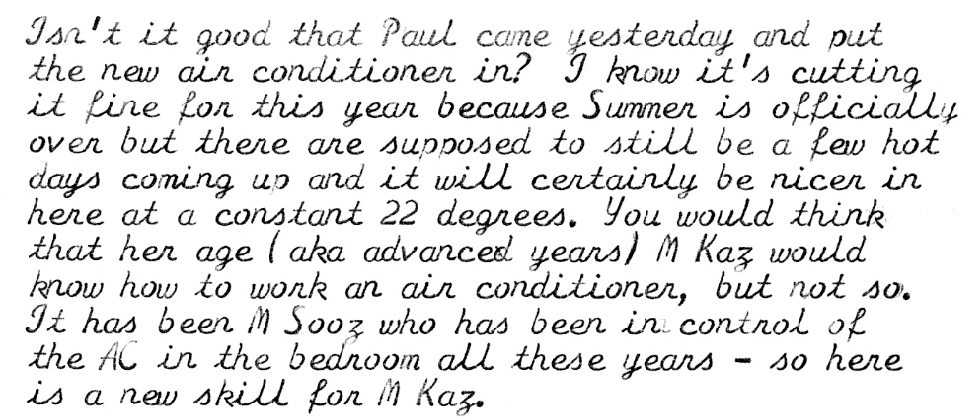 Isn't it good that Paul came yesterday and put
the new air conditioner in? I know it's cutting
it fine for this year because Summer is officially
over but there are supposed to still be a few hot
days coming up and it will certainly be nicer in
here at a constant 22 degrees. You would think
that her age (aka advanced years) M Kaz would
know how to work an air conditioner, but not so.
It has been M Sooz who has been in control of
the AC in the bedroom all these years - so here
is a new skill for M Kaz.